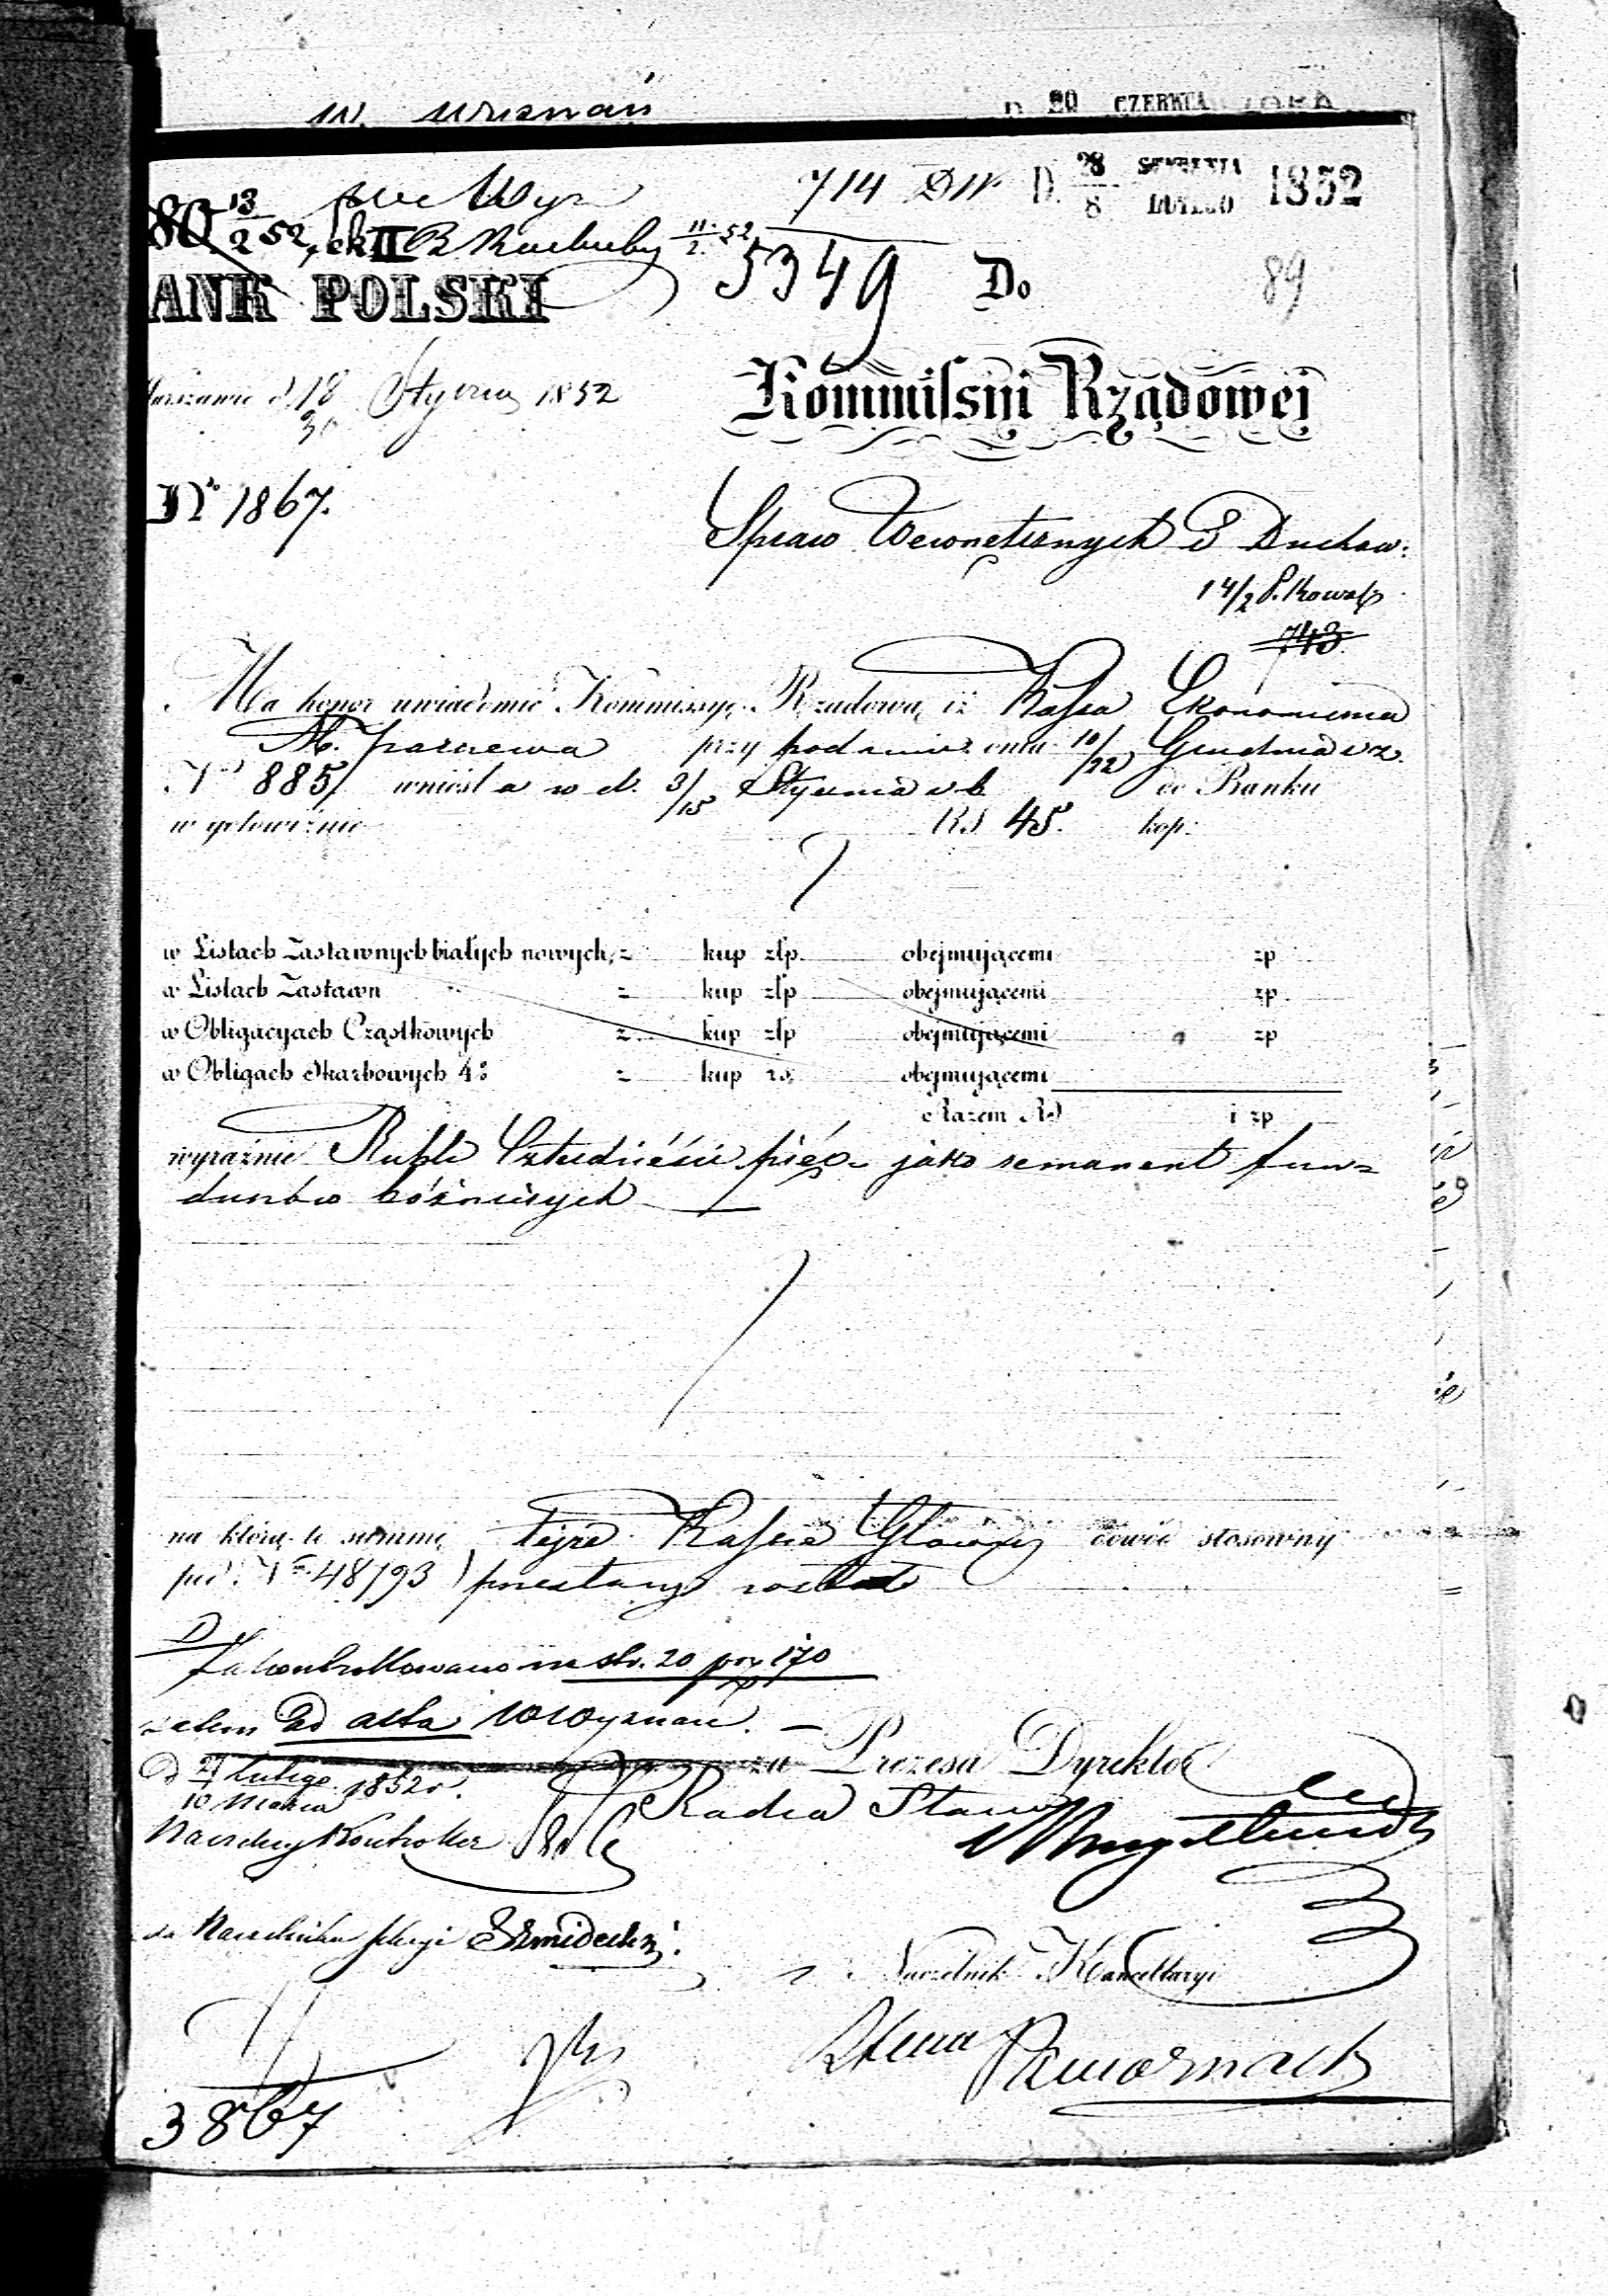 W. Wyznań
D. 20 CZERWCA
714 DW D. 28/8 STYCZNIA/LUTEGO 1852
80 13/2 52, Sek II B Rachuby 11/2 52
5349
89
BANK POLSKI
Do
Warszawie d. 18/30 Stycznia 1852
Kommissyi Rządowej
Nº 1867.
Spraw Wewnętrznych i Duchow:
14/2 P. Kowal
743.
Ma honor uwiadomić Kommissyę Rządową iż Kassa Ekonomiczna
M. Parczewa przy podaniu z dnia 10/22 Grudnia v z.
Nº 885/ wniosła w d. 3/15 Stycznia v b do Banku
w gotowiźnie RS 45. kop:
w Listach Zastawnych białych nowych, z kup złp. obejmującemi zp
w Listach Zastawn z kup złp obejmującemi zp
w Obligacyach Cząstkowych z kup złp obejmującemi zp
w Obligach Skarbowych 4% z kup rs. obejmującemi
Razem RS i zp
wyraźnie Rubli Czterdzieści pięć jako remanent fun=
duszów bóżniczych
na którą to summę tejże Kassie Główny dowód stosowny
pod Nº 48193 przesłany został
D
Zakontrollowano na str. 20 poz 170
zatem ad acta W Wyznań. —
za Prezesa Dyrektor
D 27 Lutego/10 Marca 1852 r.
Radca Stanu
Naczelny Kontroller
za Naczelnika Sekcyi Szmidecki.
Naczelnik Kancellaryi
3867